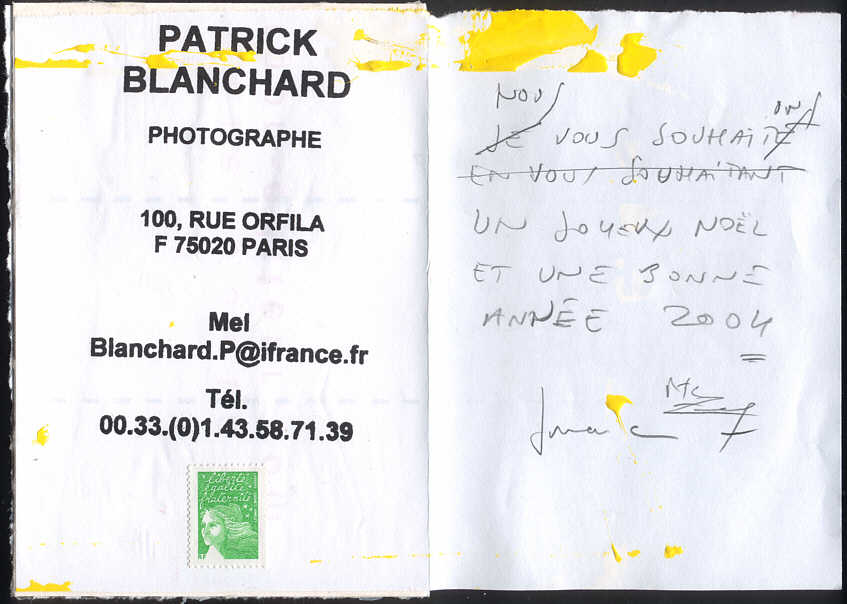 PATRICK
BLANCHARD
PHOTOGRAPHE
100, RUE ORFILA
F 75020 PARIS
Mel
Blanchard.P@ifrance.fr
Tél.
00.33.(0)1.43.58.71.39
liberté
égalité
fraternité
NOUS
JE VOUS SOUHAITE ONS
EN VOUS SOUHAITANT
UN JOYEUX NOËL
ET UNE BONNE
ANNÉE 2004